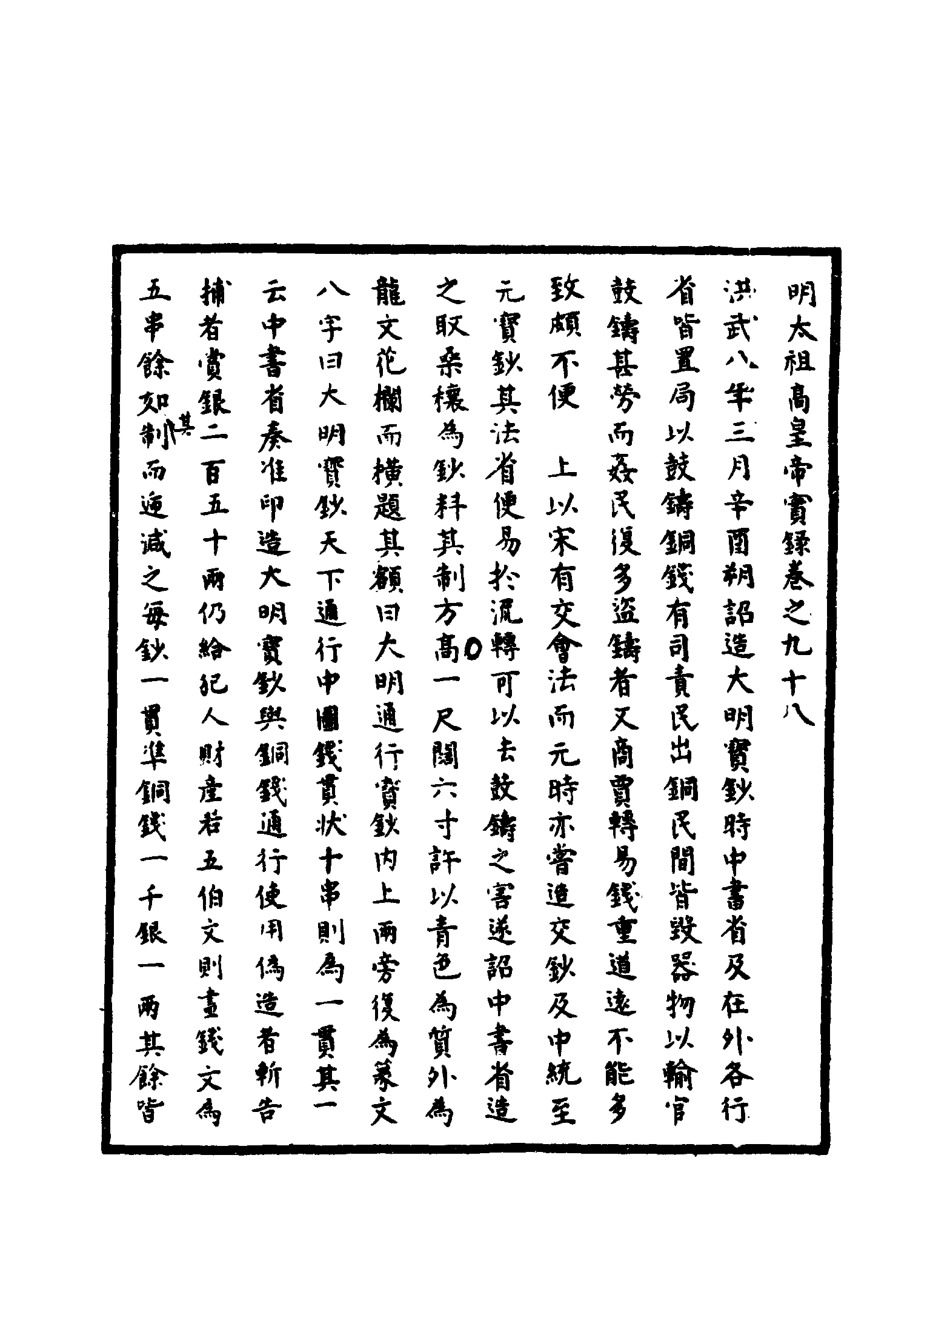 明太祖高皇帝實錄卷之九十八
洪武八年三月辛酉朔詔造大明寶鈔時中書省及在外各行
省皆置局以鼓鑄銅錢有司責民出銅民間皆毀器物以輸官
鼓鑄甚勞而姦民復多盜鑄者又商賈轉易錢重道遠不能多
致頗不便　上以宋有交會法而元時亦嘗造交鈔及中統至
元寶鈔其法省便易於流轉可以去鼓鑄之害遂詔中書省造
之取桑穰為鈔料其制方高一尺闊六寸許以青色為質外為
龍文花欄而橫題其額曰大明通行寶鈔內上兩旁復為篆文
八字曰大明寶鈔天下通行中圖錢貫狀十串則為一貫其一
云中書省奏准印造大明寶鈔與銅錢通行使用偽造者斬告
捕者賞銀二百五十兩仍給犯人財產若五伯文則畫錢文為
五串餘如其制而遞減之每鈔一貫準銅錢一千銀一兩其餘皆